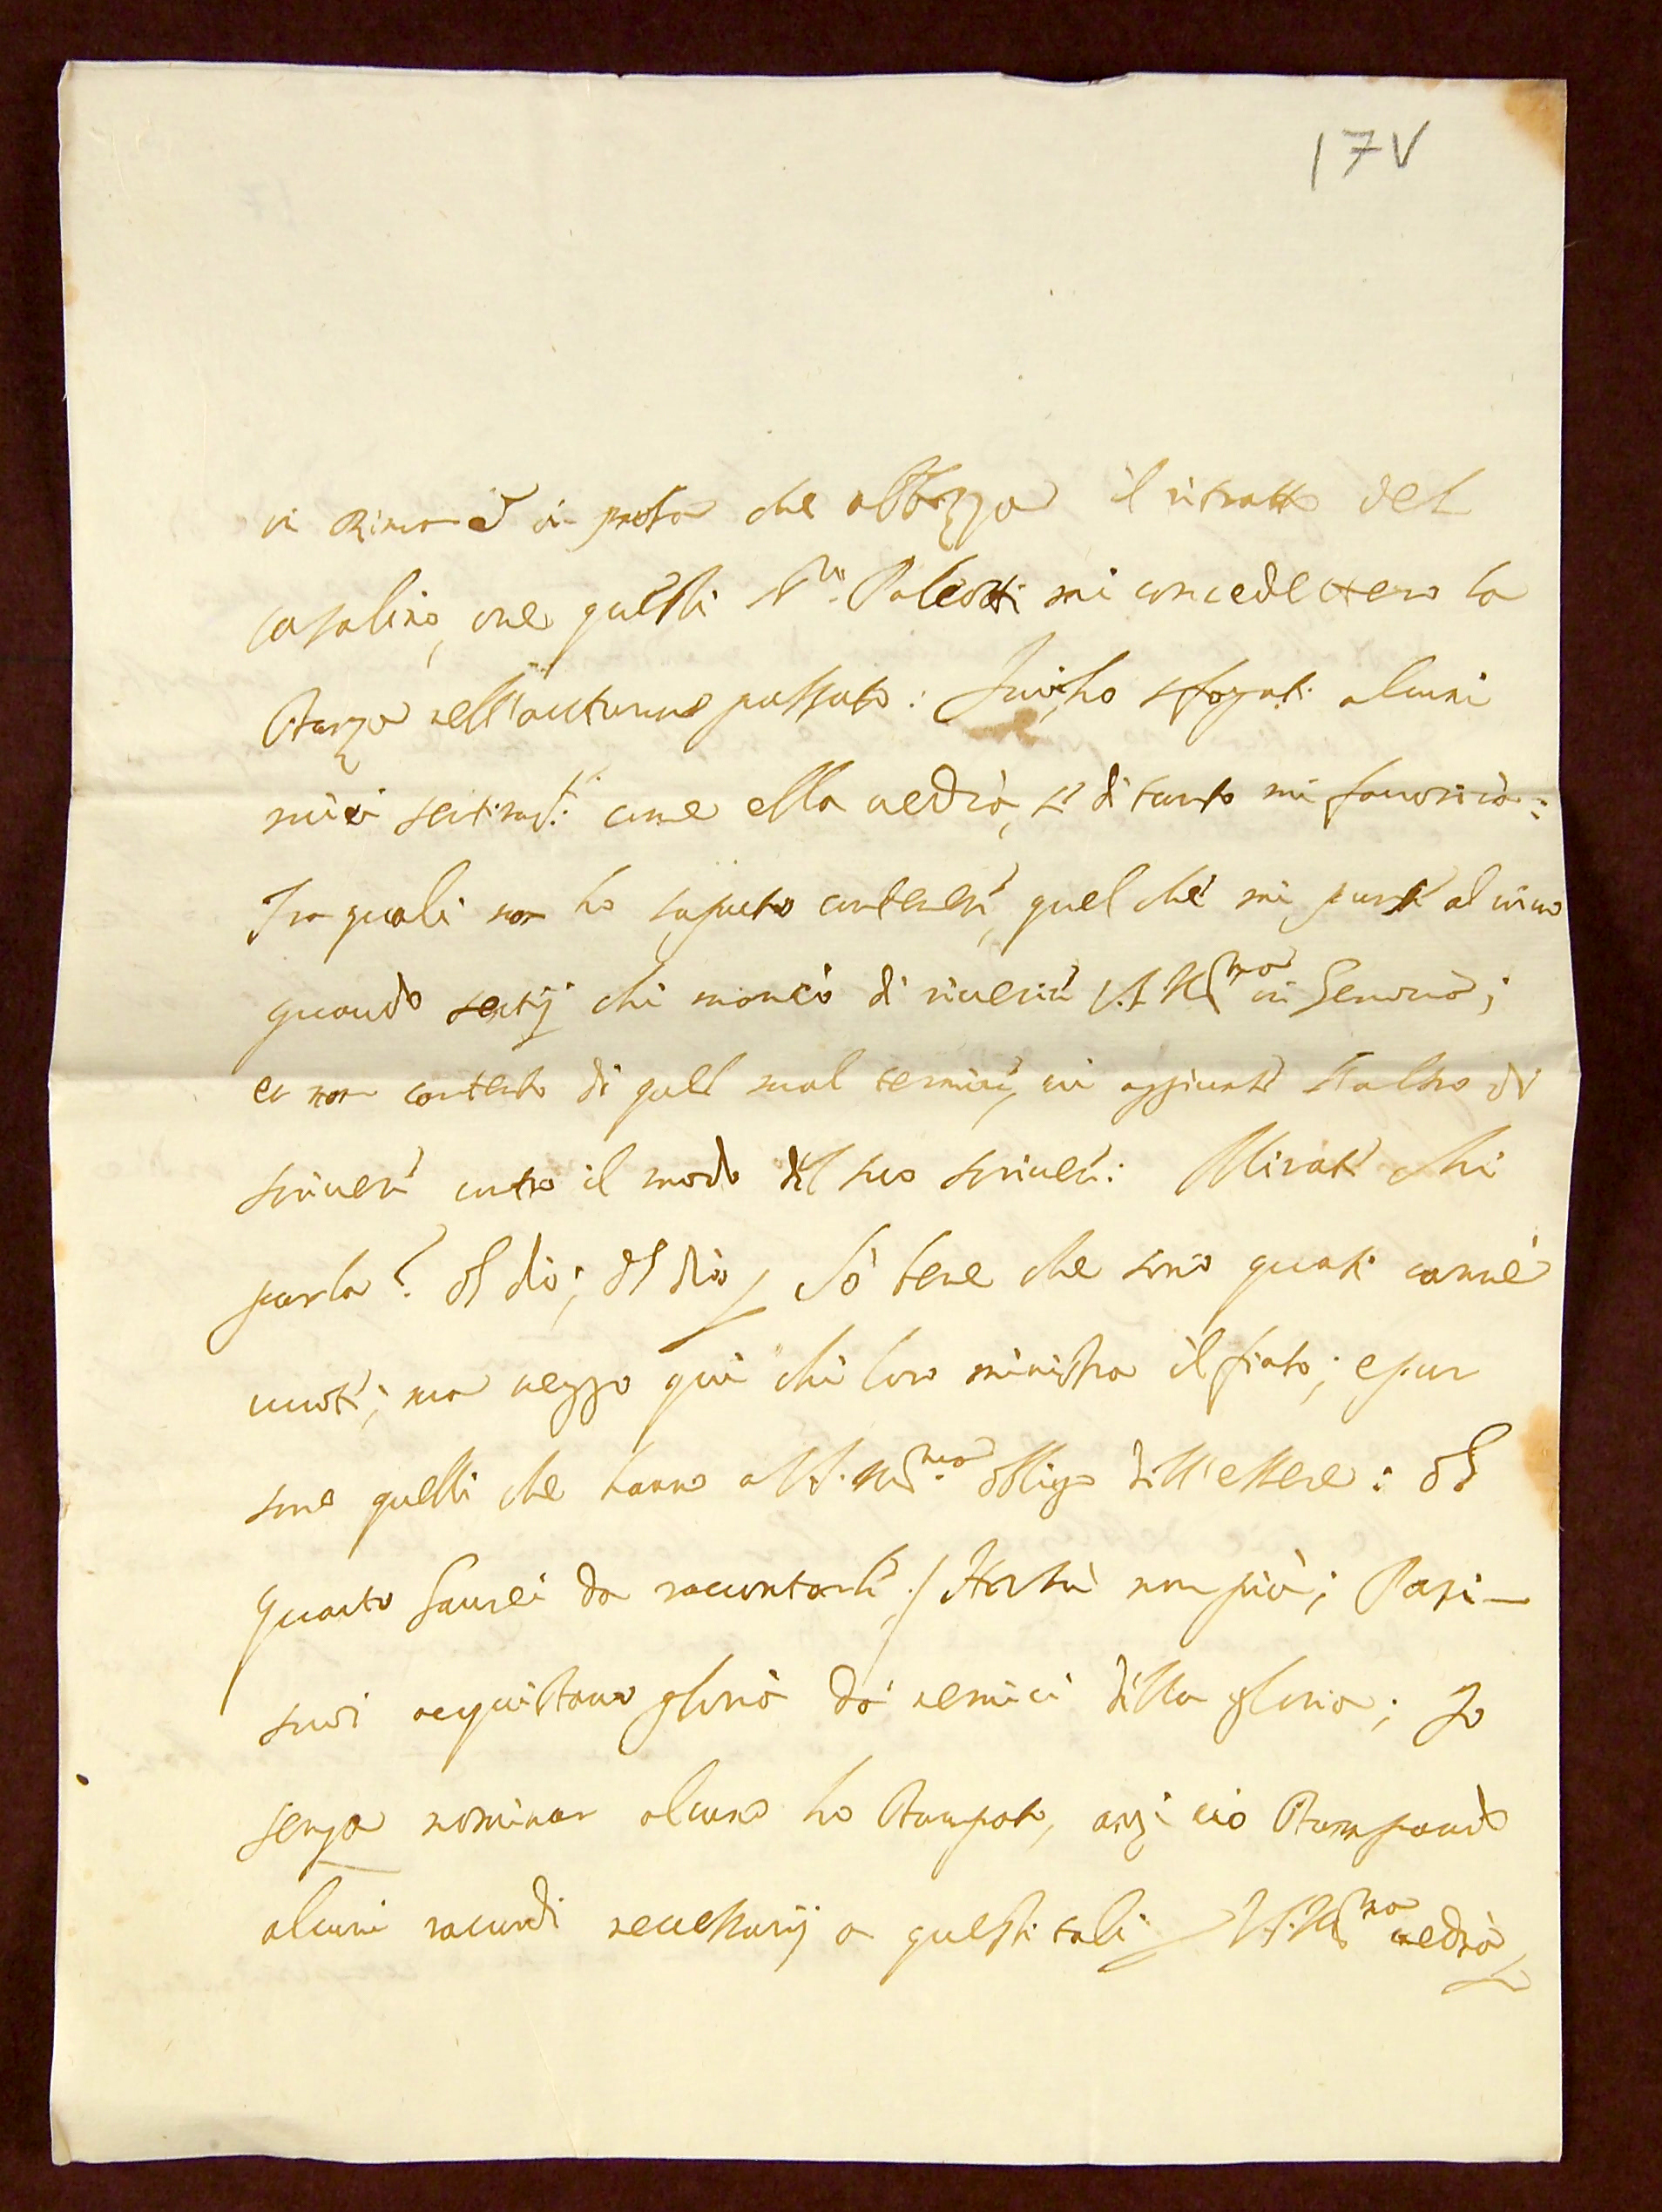 17V
in Rima e in prosa che abbozza il ritratto del
casalino, one questi Sri. Paleotti mi concedettero la
stanza nell'autunno passato: Ivi, ho sfogati alcuni
miei sentimti: come ella vedrà, se di tanto mi favorirà:
Tra quali non ho saputo contener, quel che mi punse al vivo
quando sentij chi mancò di riuerir V.S. Illma in Genova;
et non contento di quel mal termine, vi aggiunse l'altro di
scriuere contro il modo del suo scriuere: Mirate chi
parla? oh dio; oh dio, Sò bene che sono quasi canne
uuote; ma veggo qui chi loro ministra il fiato; e pur
sono quelli che hanno a V.S. Illma obligo dell'essere: oh
quanto haurei da racontarle! Horsù non più; I pari
suoi acquistano gloria da nemici della gloria; Io
senza nominar alcuno ho stampato, anzi vio stampando
alcuni racordi necessarij a questi tali, V.S. Illma vedrà,